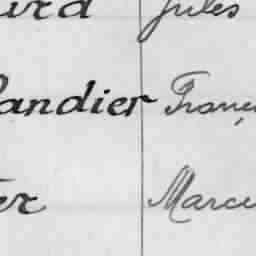 ard Jules
andier Franç
er Marce